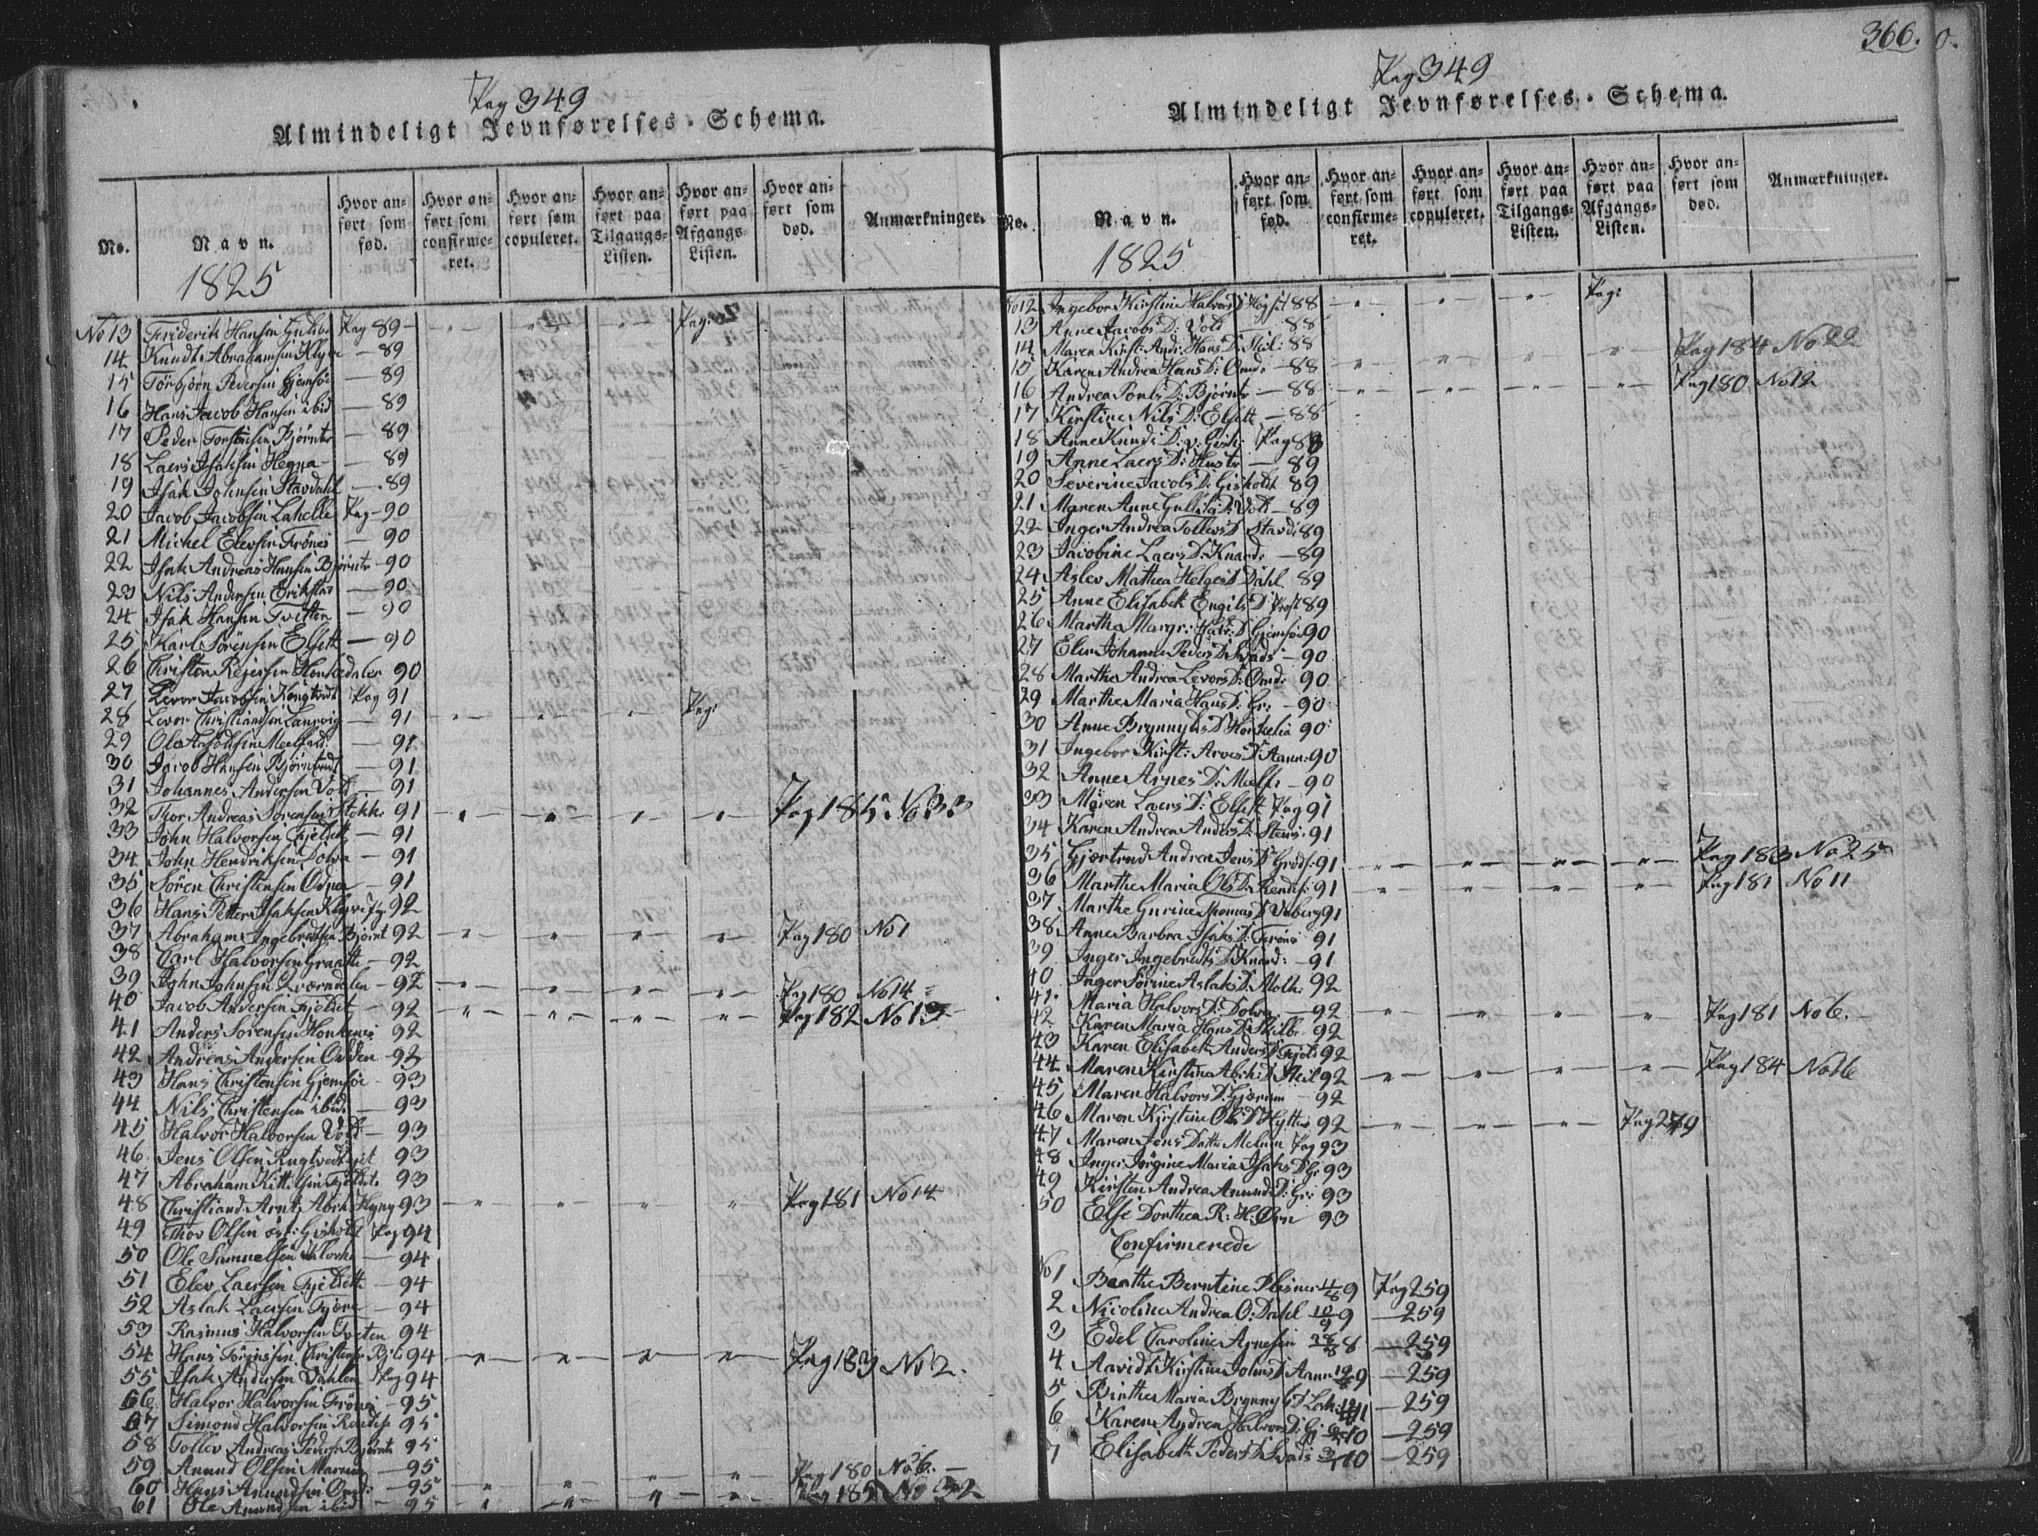 Pag 349
Almindeligt Jevnførelses-Schema.
No.
Navn.
Hvor anført som fød.
Hvor anført som confirmeret.
Hvor anført som copuleret.
Hvor anført paa Tilgangs-Listen.
Hvor anført paa Afgangs-Listen.
Hvor anført som død.
Anmærkninger.
1825
No 13 Friderik Hansen Pag 89 Pag:
14 Knudt Abrahamsen Klyve — 89
15 Torbjørn Pedersen Gjemsøe — 89
16 Hans Jacob Hansen ibid — 89
17 Peder Torstensen Bjørntv — 89
18 Laers Isaksen Hegna — 89
19 Isak Johnsen Stavdahl — 89
20 Jacob Jacobsen Lahelle Pag — 90
21 Michel Elevsen Frönes — 90
22 Isak Andreas Hansen Bjørntv — 90
23 Nils Andersen Erikstad — 90
24 Isak Hansen Tvetten — 90
25 Karl Sörensen Elsett — 90
26 Christen Rejersen Honsedalen 90
27 Levor Jacobsen Rongtvedt Pag 91
28 Levor Christiansen Langvig — 91 Pag:
29 Ole — 91
30 Jacob Hansen Bjørntvdt — 91
31 Johannes Andersen Vold — 91
32 Thor Andreas Sörensen Stokke 91 Pag 185 No 33
33 John Halvorsen Fjelset — 91
34 John Hendriksen Dolva — 91
35 Sören Christensen Odna — 91
36 Hans Petter Isaksen Klyve Pag: 92
37 Abraham Ingebretsen Bjørnt 92 Pag 180 No 1
38 Carl Halvorsen Graatte — 92
39 John Johnsen Qværndalen — 92 Pag 180 No 14
40 Jacob Andersen Fjelset — 92 Pag 182 No 13
41 Anders Sörensen 92
42 Andreas Andersen Odden — 93
43 Hans Christensen Gjemsöe — 93
44 Nils Christensen ibid — 93
45 Halvor Halvorsen Vold — 93
46 Jens Olsen Rugtvedt 93
47 Abraham Kittilsen Fjelset 93
48 Christian Arnt Abrah 93 Pag 181 No 14
49 Thor Olsen Gisholt Pag 94
50 Ole Samuelsen Klovho — 94
51 Elev Laersen Fjelsett — 94
52 Aslak Laersen Fjære — 94
53 Rasmus Halvorsen Tveten 94
54 Hans Törgersen 94 Pag 183 No 2.
55 Isak Andersen Dahlen Pag 94
56 Halvor Halvorsen Frönes — 95
57 Simond Halvorsen 95
58 Tollev Andreas Peders Bjørntv 95
59 Anund Olsen — 95
60 Hans Anundsen — 95 Pag 180 No 6.
61 Ole Anundsen ibid — 95 Pag 185 No 32
366.
Pag 349
Almindeligt Jevnførelses-Schema.
No.
Navn.
Hvor anført som fød.
Hvor anført som confirmeret.
Hvor anført som copuleret.
Hvor anført paa Tilgangs-Listen.
Hvor anført paa Afgangs-Listen.
Hvor anført som død.
Anmærkninger.
1825
No 12 Ingebor Kirstine Halvors D: 88 Pag:
13 Anne Jacobs D: Vold — 88
14 Maren Kirst: Andr: Hans D: Skil: 88 Pag 184 No 22
15 Karen Andrea Hans D: Omdr — 88 Pag 180. No 12
16 Andrea Pouls D: Bjørntv — 88
17 Kirstine Nils D: Elsett — 88
18 Anne Knuds D: Pag 88
19 Anne Laers D: — 89
20 Severine Jacobs D: Gisholdt 89
21 Maren Anne D: Vold — 89
22 Inger Andrea Tollevs D Stavd: 89
23 Jacobine Laers D: Knard: — 89
24 Aslev Mathea Helges D Dahl 89
25 Anne Elisabeth Engils D: 89
26 Martha Margr: Halv: D Gjemsöe 90
27 Elen Johanne Peders D: — 90
28 Marthe Andrea Levors D: Omdr 90
29 Marthe Maria Hans D: Gr: — 90
30 Anne Brynnylds D: 90
31 Ingebor Kirst: D: Aann: 90
32 Anne Arnes D: Mælf: — 90
33 Maren Laers D: Elsett Pag 91
34 Karen Andrea Anders D: 91
35 Gjertrud Andrea Jens D: 91 Pag 183 No 25
36 Marthe Maria Ols D: 91 Pag 181 No 11
37 Marthe Gurine Thomas D 91
38 Anne Barbra Isaks D: Frönes 91
39 Inger Ingebrets D: Knard: — 91
40 Inger Sörine Aslaks D: Moth: 92
41. Maria Halvors D: Dolva — 92 Pag 181 No 6.
42 Karen Maria Hans D: Skilb: 92
43 Karen Elisabeth Anders D: 92
44 Maren Kirstine D Skil 92 Pag 184 No 16
45 Maren Halvors D: — 92
46 Maren Kirstine Ols D Hytten 92 Pag 279
47 Maren Jens Datter Melum Pag 93
48 Inger Jörgine Maria Isaks D Gr: 93
49 Kirsten Andrea Anunds D: Gr: 93
50 Else Dorthea R: H: Örn 93
Confirmerede
No 1 Berntine Plesner 4/8 9 Pag 259
2 Nicoline Andrea O: Dahl 10/9 9 — 259
3 Edel Caroline Arnesen 8 — 259
4 Kirstine Johns D: Aann: 9 — 259
5 Birthe Maria 11 — 259
6 Karen Andrea Halvors D: 10 — 259
7 Elisabeth Peders D: 10 — 259